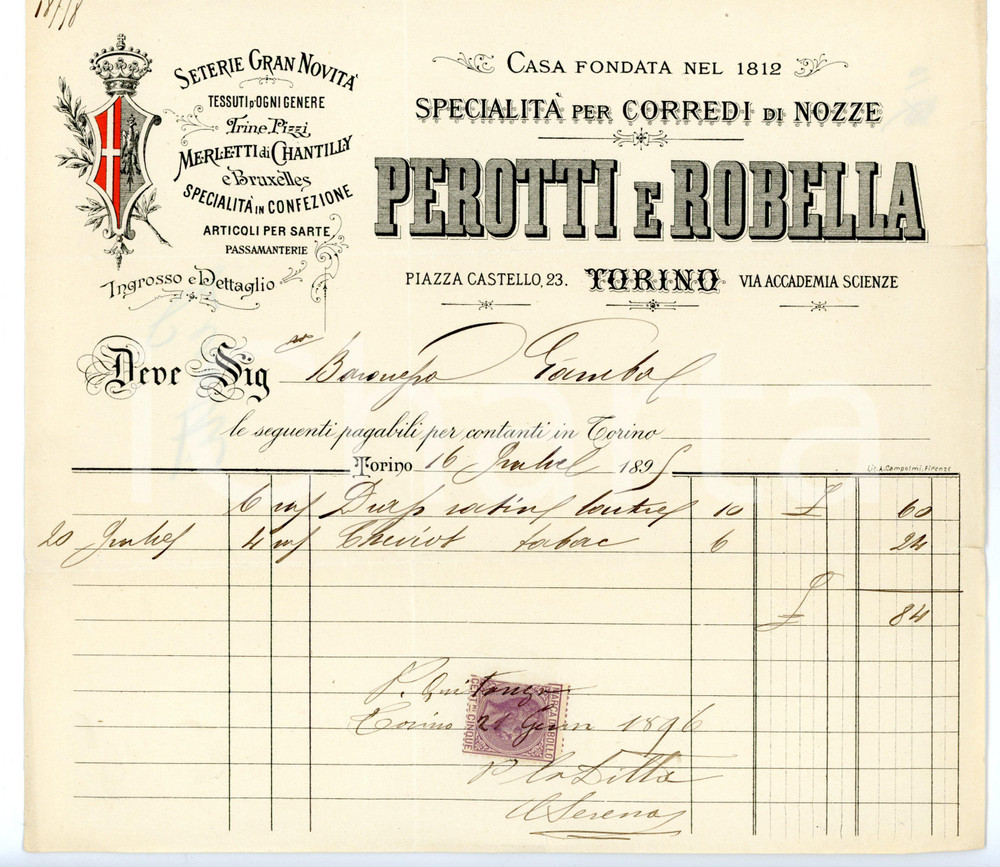 SETERIE GRAN NOVITÀ
TESSUTI D'OGNI GENERE
Trine, Pizzi,
MERLETTI di CHANTILLY
e Bruxelles
SPECIALITÀ IN CONFEZIONE
ARTICOLI PER SARTE
PASSAMANTERIE
Ingrosso e Dettaglio
CASA FONDATA NEL 1812
SPECIALITÀ PER CORREDI DI NOZZE
PEROTTI E ROBELLA
PIAZZA CASTELLO, 23. TORINO VIA ACCADEMIA SCIENZE
Deve Sig ra Baronessa Gamba
le seguenti pagabili per contanti in Torino
Torino 16 1895
Lit. A. Campolmi, Firenze
6 Drap satin 10 £ 60
20 4 Cheviot tabac 6 24
£ 84
P. Quitanza
Torino 21 Genn 1896
P la Ditta
MARCA DA BOLLO
CENT.MI CINQUE